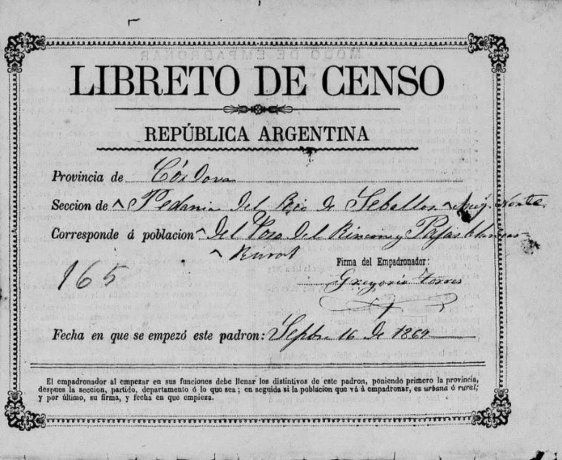 LIBRETO DE CENSO
REPÚBLICA ARGENTINA
Provincia de Córdova
Seccion de Pedania del Rio de Seballos
Corresponde á poblacion del Poso del Rincon y Pajas blancas
Rural
165
Firma del Empadronador:
Gregorio Torres
Fecha en que se empezó este padron: Sepbre 16 de 1869
El empadronador al empezar en sus funciones debe llenar los distintivos de este padron, poniendo primero la provincia,
despues la seccion, partido, departamento ó lo que sea; en seguida si la poblacion que vá á empadronar, es urbana ó rural;
y por último, su firma, y fecha en que empieza.